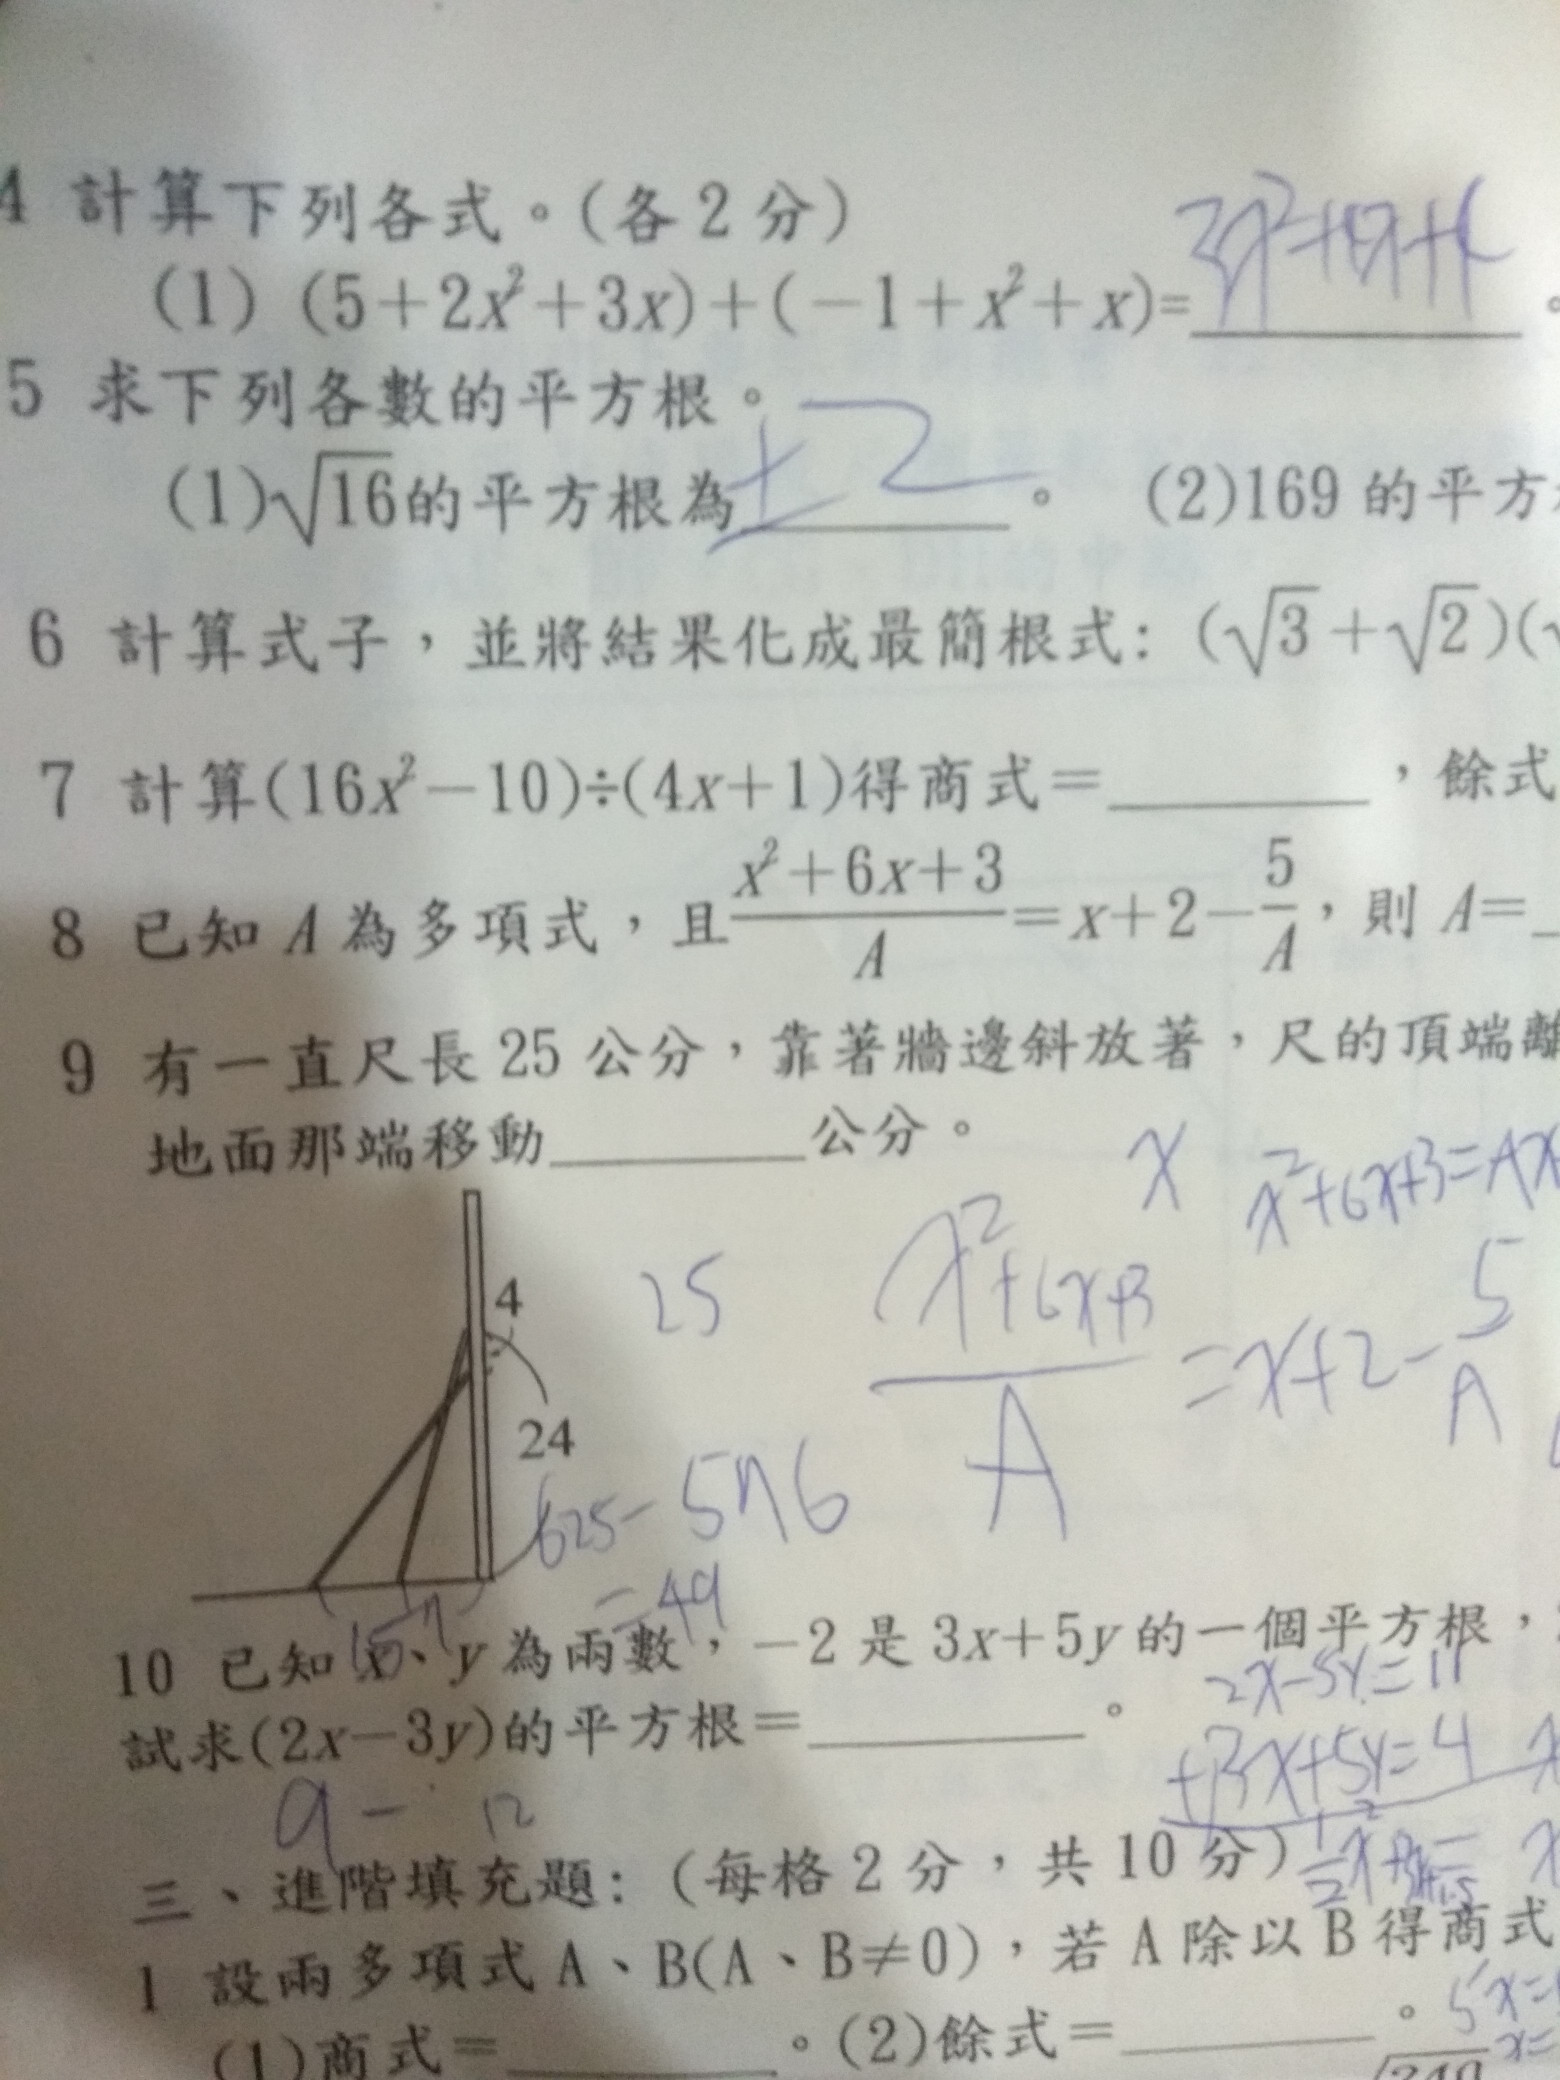 4 計算下列各式。(各2分)
(1) (5+2x²+3x)+(-1+x²+x)= 3x²+4x+4 。
5 求下列各數的平方根。
(1)√16的平方根為 ±2 。 (2)169的平方
6 計算式子，並將結果化成最簡根式: (√3+√2)(
7 計算(16x²-10)÷(4x+1)得商式=______，餘式
8 已知A為多項式，且 x²+6x+3/A = x+2-5/A，則A=
9 有一直尺長25公分，靠著牆邊斜放著，尺的頂端離
地面那端移動______公分。
x x²+6x+3=Ax
4 25 x²+6x+3/A =x+2-5/A
24
625-576
=49
15 7
10 已知x、y為兩數，-2是3x+5y的一個平方根，
2x-5y=11
試求(2x-3y)的平方根=______。
+)3x+5y=4
9 - 12
三、進階填充題:(每格2分，共10分)
1 設兩多項式A、B(A、B≠0)，若A除以B得商式
5x=
(1)商式=______。(2)餘式=______。
x=